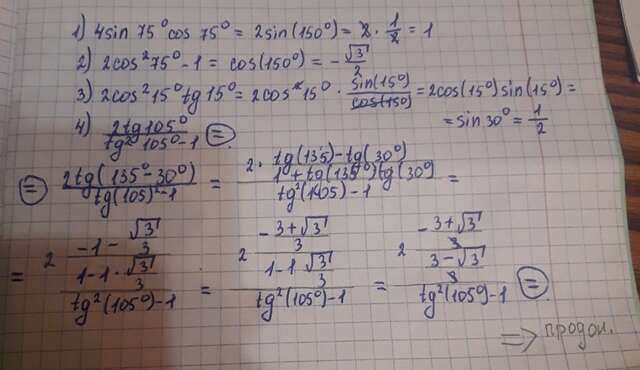 1) 4sin 75° cos 75° = 2sin(150°) = 2 · 1/2 = 1
2) 2cos²75° - 1 = cos(150°) = - √3/2
3) 2cos²15° tg 15° = 2cos²15° · sin(15°)/cos(15°) = 2cos(15°) sin(15°) =
= sin 30° = 1/2
4) 2tg105°/(tg²105° - 1) =
= 2tg(135° - 30°)/(tg(105)² - 1) = 2 · (tg(135) - tg(30°))/(1 + tg(135°)tg(30°))/(tg²(105) - 1) =
= 2 (-1 - √3/3)/(1 - 1 · √3/3)/(tg²(105°) - 1) = 2 (-(3 + √3)/3)/(1 - 1 √3/3)/(tg²(105°) - 1) = 2 (-(3 + √3)/3)/((3 - √3)/3)/(tg²(105°) - 1) =
⇒ продол.